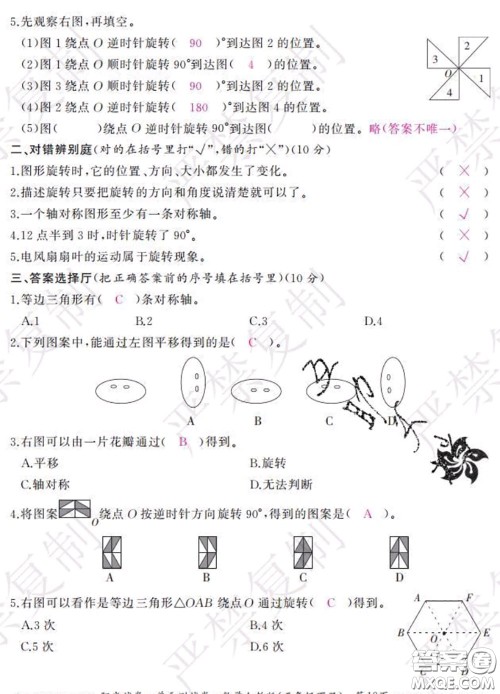 5.先观察右图,再填空。
(1)图1绕点O逆时针旋转( 90 )°到达图2的位置。
(2)图1绕点O逆时针旋转90°到达图( 4 )的位置。
(3)图3绕点O顺时针旋转( 90 )°到达图2的位置。
(4)图2绕点O顺时针旋转( 180 )°到达图4的位置。
(5)图( )绕点O逆时针旋转90°到达图( )的位置。略(答案不唯一)
2
3
O
1
4
二、对错辨别庭(对的在括号里打“√”,错的打“×”)(10分)
1.图形旋转时,它的位置、方向、大小都发生了变化。 ( × )
2.描述旋转只要把旋转的方向和角度说清楚就可以了。 ( × )
3.一个轴对称图形至少有一条对称轴。 ( √ )
4.12点半到3时,时针旋转了90°。 ( × )
5.电风扇扇叶的运动属于旋转现象。 ( √ )
三、答案选择厅(把正确答案前的序号填在括号里)(10分)
1.等边三角形有( C )条对称轴。
A.1 B.2 C.3 D.4
2.下列图案中,能通过左图平移得到的是( C )。
A B C D
3.右图可以由一片花瓣通过( B )得到。
A.平移 B.旋转
C.轴对称 D.无法判断
4.将图案 O 绕点O按逆时针方向旋转90°,得到的图案是( A )。
A B C D
5.右图可以看作是等边三角形△OAB绕点O通过旋转( C )得到。
A.3次 B.4次
C.5次 D.6次
A F
B O E
严禁复制